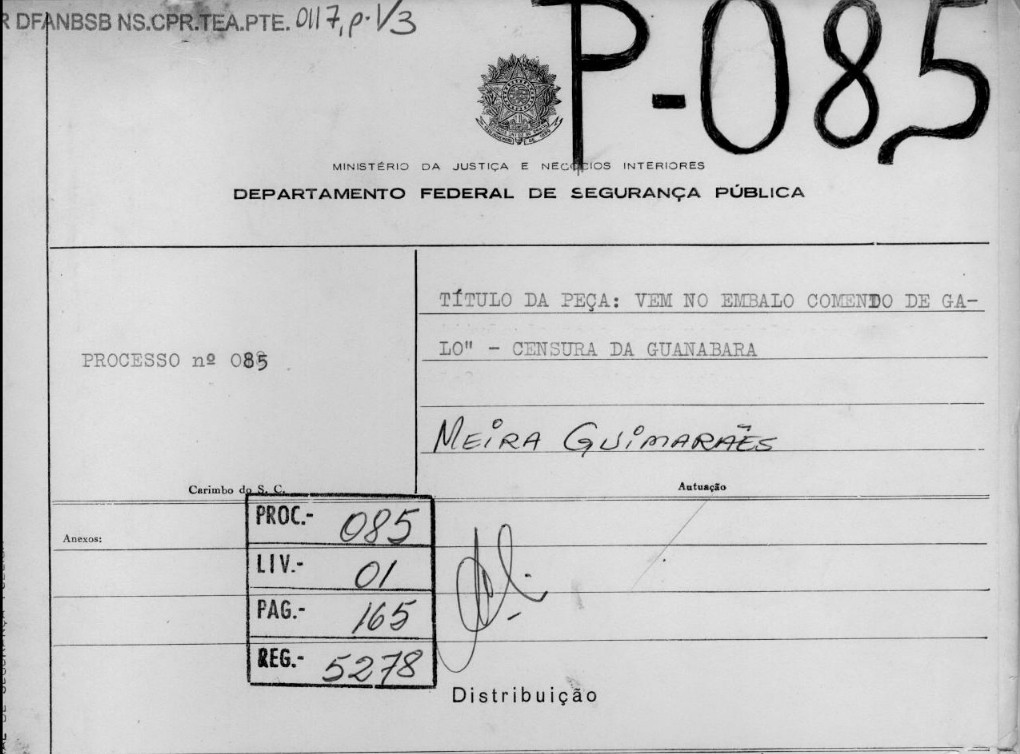 R DFANBSB NS.CPR.TEA.PTE. 0117, p. 1/3
P-085
MINISTÉRIO DA JUSTIÇA E NEGÓCIOS INTERIORES
DEPARTAMENTO FEDERAL DE SEGURANÇA PÚBLICA
TÍTULO DA PEÇA: VEM NO EMBALO COMENDO DE GA-
LO" - CENSURA DA GUANABARA
PROCESSO nº 085
MEIRA GUIMARÃES
Carimbo do S. C.
Autuação
Anexos:
PROC.- 085
LIV.- 01
PAG.- 165
REG.- 5278
Distribuição